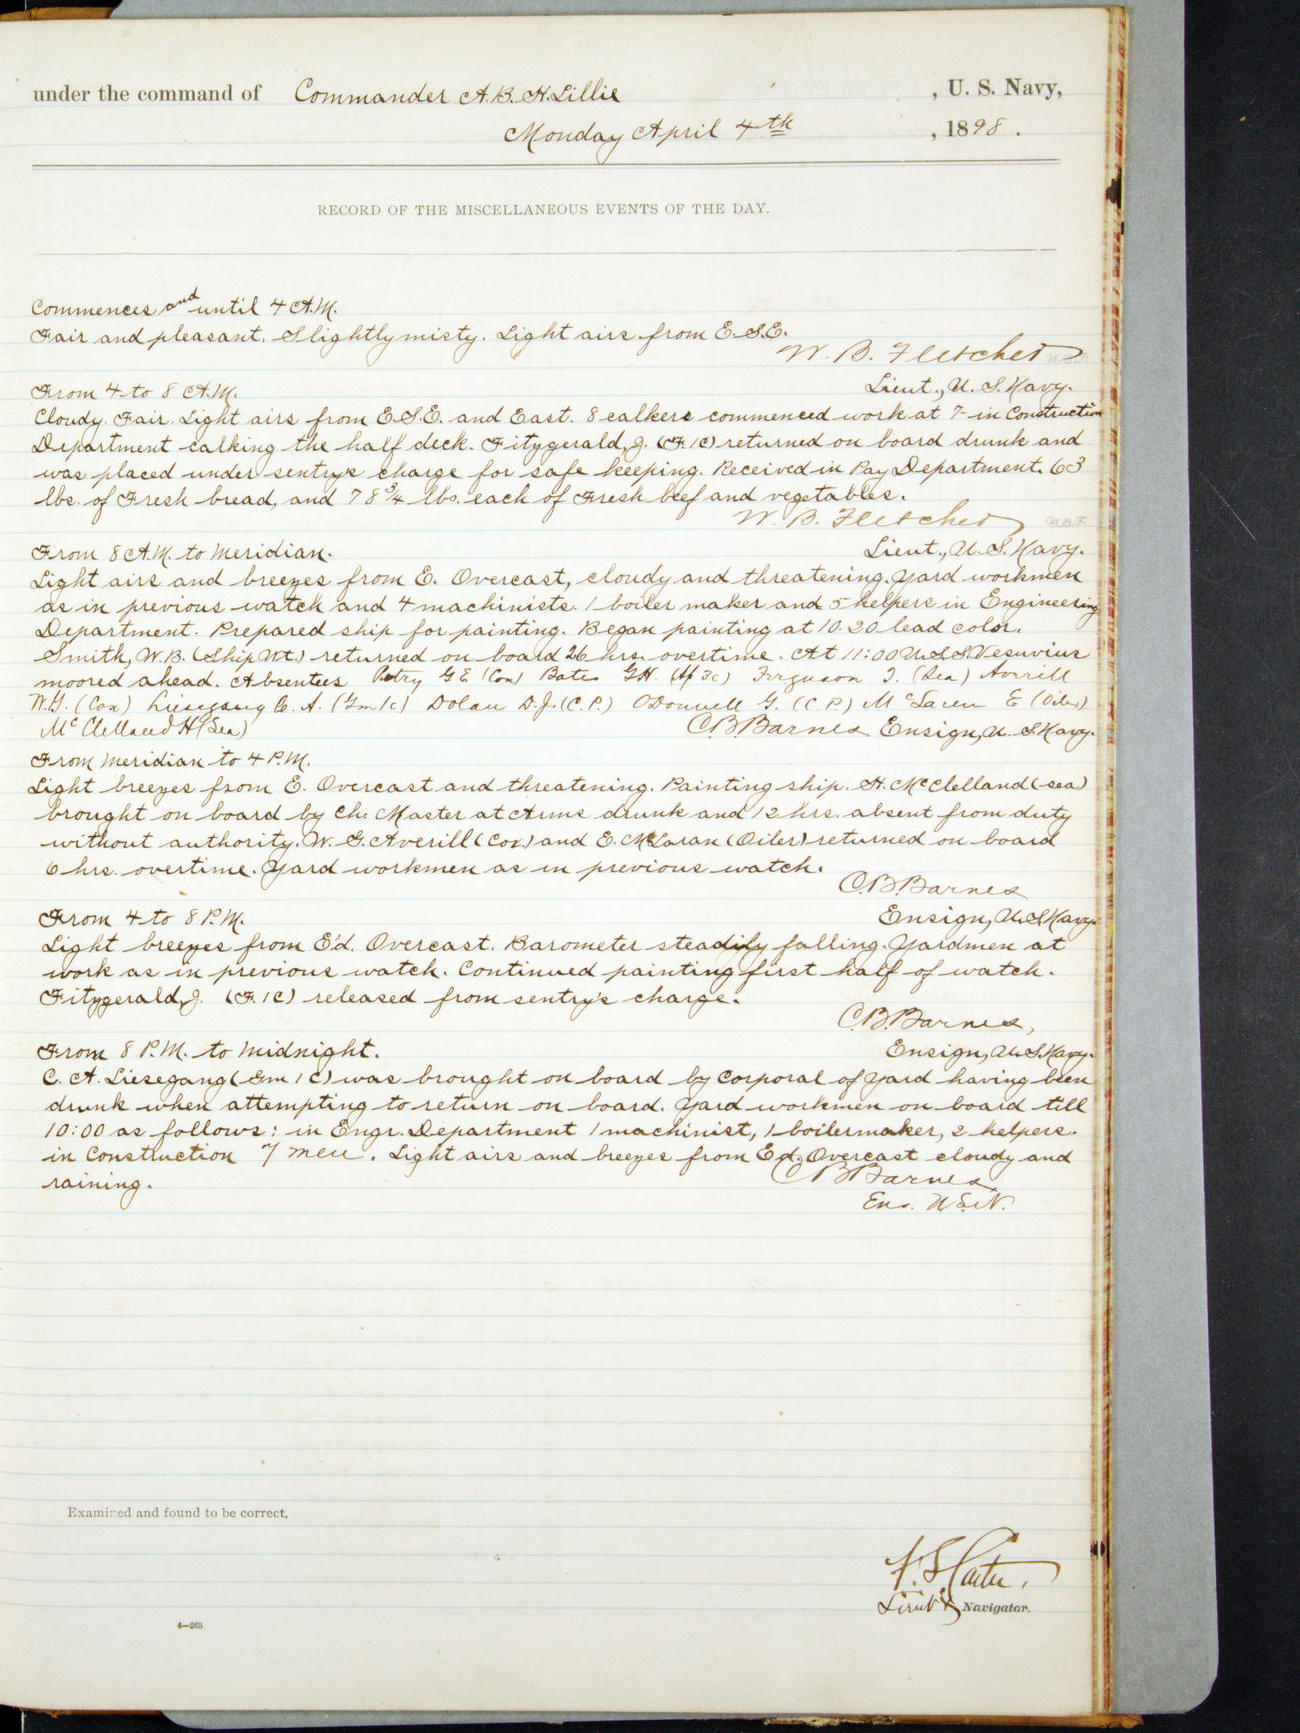 under the command of Commander A.B.H. Lillie , U. S. Navy,
Monday April 4th , 1898 .
RECORD OF THE MISCELLANEOUS EVENTS OF THE DAY.
Commences and until 4 A.M.
Fair and pleasant. Slightly misty. Light airs from E.S.E.
W. B. Fletcher
From 4 to 8 A.M. Lieut., U.S. Navy.
Cloudy. Fair. Light airs from E.S.E. and East. 8 calkers commenced work at 7- in Construction
Department calking the half deck. Fitzgerald, J. (F.1C) returned on board drunk and
was placed under sentry's charge for safe keeping. Received in Pay Department. 63
lbs. of Fresh bread, and 78 3/4 lbs. each of Fresh beef and vegetables.
W. B. Fletcher W.B.F.
From 8 A.M. to Meridian. Lieut., U.S. Navy.
Light airs and breezes from E. Overcast, cloudy and threatening. Yard workmen
as in previous watch and 4 machinists. 1 boiler maker and 5 helpers in Engineering
Department. Prepared ship for painting. Began painting at 10.20 lead color.
Smith, W.B. (Ship Wt.) returned on board 26 hrs. overtime. At 11:00 U.S.S. Vesuvius
moored ahead. Absentees Petry G E (Cox) Bates G H. Ferguson J. (Sea) Averill
W.G. (Cox) Liesegang C. A. (Gm 1c) Dolan D.J. (C.P.) O'Donnell G. (C.P.) McLaren E (Oiler)
McClelland H (Sea) C.B. Barnes Ensign, U.S. Navy.
From Meridian to 4 P.M.
Light breezes from E. Overcast and threatening. Painting ship. H. McClelland (sea)
brought on board by Ch. Master at Arms drunk and 12 hrs. absent from duty
without authority. W. G. Averill (Cox.) and E. McLaran (Oiler) returned on board
6 hrs. overtime. Yard workmen as in previous watch.
C.B. Barnes
From 4 to 8 P.M. Ensign, U.S. Navy.
Light breezes from E'd. Overcast. Barometer steadily falling. Yardmen at
work as in previous watch. Continued painting first half of watch.
Fitzgerald, J. (F.1C) released from sentry's charge.
C.B. Barnes,
From 8 P.M. to Midnight. Ensign, U.S. Navy.
C. A. Liesegang (Gm 1C) was brought on board by Corporal of Yard having been
drunk when attempting to return on board. Yard workmen on board till
10:00 as follows: in Engr. Department 1 machinist, 1 boilermaker, 2 helpers.
in Construction 7 men. Light airs and breezes from Ed. Overcast cloudy and
raining. C B Barnes
Ens. U.S.N.
Examined and found to be correct.
Lieut & Navigator.
4—265